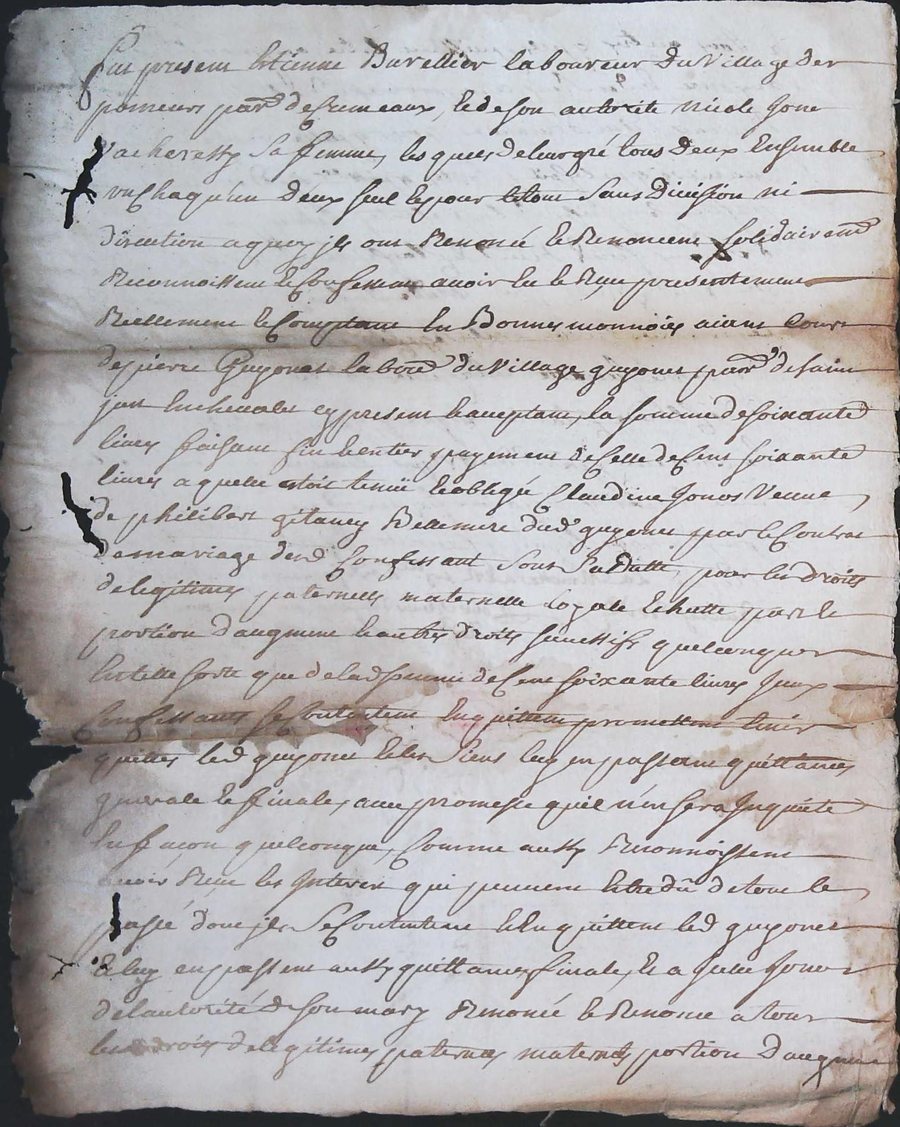 fut present Etienne Burellier laboureur du Village des
parr^e de Cremeaux, et de son autorité nicole Jone
sa femme, lesquels de leur gré tous deux Ensemble
un Chaqu'un d'eux seul et pour le tout sans Division ni
Discution a quoy jls ont Renoncé et Renoncent solidairem^t
Reconnoissent et Confessent avoir Eu et Reçu presentement
Reellement et Comptant En Bonnes monnoies aiant Cours
de pierre Guyonet labour^r du Village guyonet parr^e de saint
just Enchevalet cy present et acceptant, la somme de soixante
livres faisant fin et entier payement de Celle de Cent soixante
livres a quoy Etoit tenüe et obligé Claudine Jonos Veuve
de philibert gitaney Bellemere dud^t guyonet par le Contrat
de mariage desd^t Confessant sous sa datte, pour les droits
de legitimes paternelle maternelle Loyale Echutte part et
portion d'augment et autres droits successifs quelconques
En telle sorte que de lad^e somme de Cent soixante livres Jceux
Confessants se Contentent En quittent promettent tenir
quittes led^t guyonet et les siens luy en passant quittance
generale et finale, avec promesse qu'il n'en sera Jnquiété
En façon quelconque, Comme aussy Reconnoissent
avoir Reçu les Jnterets qui peuvent Etre dû de tout le
passé dont jls se Contentent et En quittent led^t guyonet
Et luy en passent aussy quittance finale, et a lad^e Jonos
de l'autorité de son mary Renoncé et Renonce a tous
les droits de legitimes paternes maternes portion D'augment